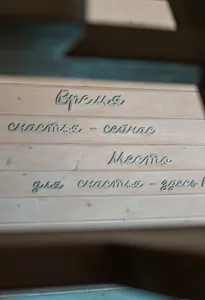 Время
счастья - сейчас
Место
для счастья - здесь!